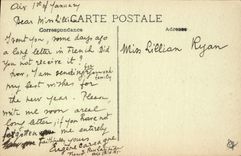 Aix 1st of January
Dear Miss Lilli
CARTE POSTALE
Correspondance
Adresse
I sent you, some days ago
a long letter in French Did
you not receive it?
Miss Lillian Ryan
Now, I am sending for you and
family
my best wishes for
the new year. Please
write me soon a
long letter, if you have not
forgotten me entirely
faithfully yours
Eugène